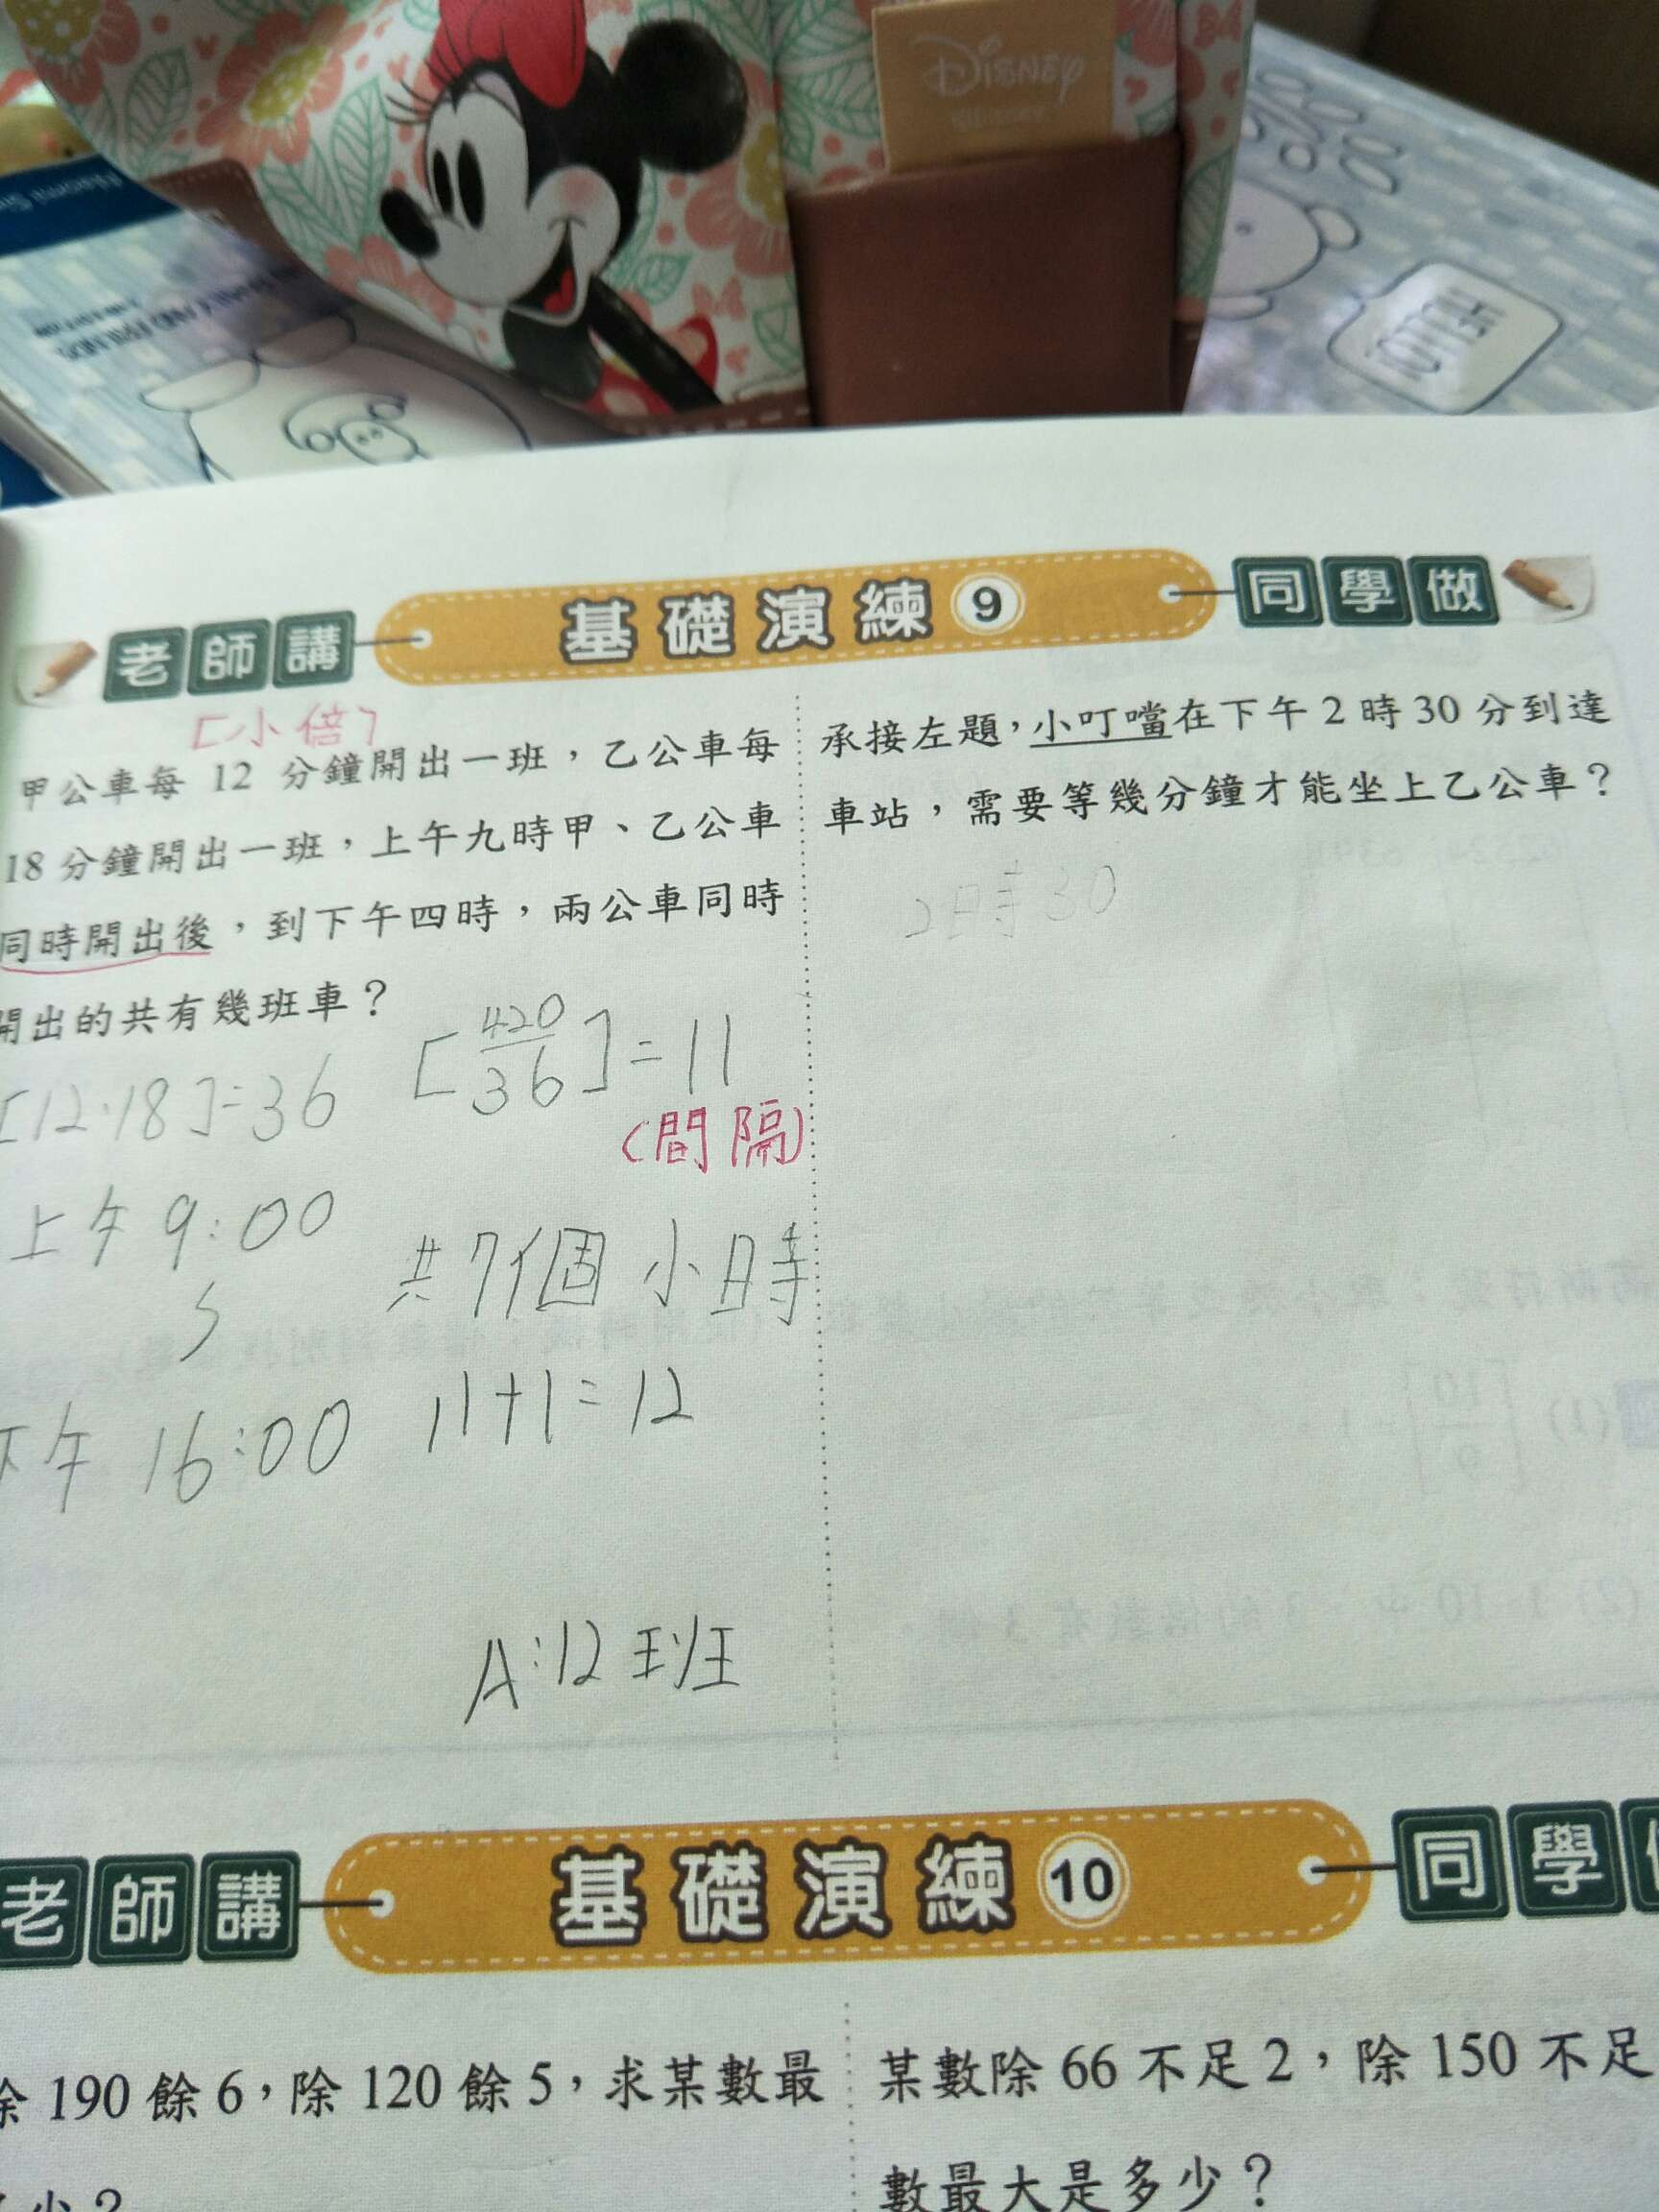 Disney
老師講 基礎演練 9 同學做
[小倍]
甲公車每 12 分鐘開出一班，乙公車每
18 分鐘開出一班，上午九時甲、乙公車
同時開出後，到下午四時，兩公車同時
開出的共有幾班車？
[12.18]=36
[420/36]=11
(間隔)
上午 9:00
共7個小時
下午 16:00
11+1=12
A:12班
承接左題，小叮噹在下午 2 時 30 分到達
車站，需要等幾分鐘才能坐上乙公車？
2時30
老師講 基礎演練 10 同學
除 190 餘 6，除 120 餘 5，求某數最
少？
某數除 66 不足 2，除 150 不足
數最大是多少？